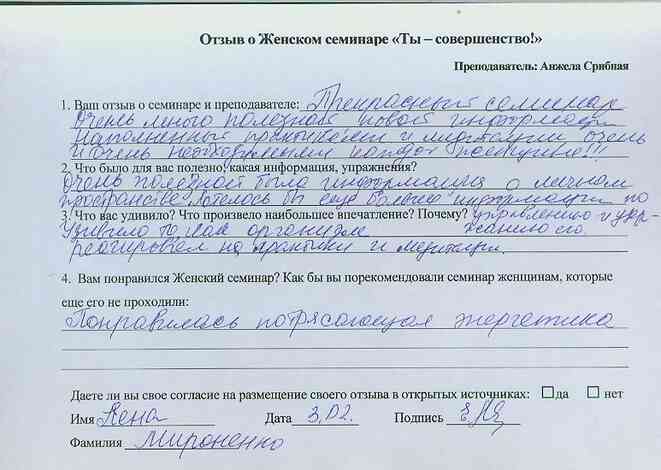 Отзыв о Женском семинаре «Ты – совершенство!»
Преподаватель: Анжела Срибная
1. Ваш отзыв о семинаре и преподавателе: Прекрасный семинар
Очень много полезной новой информации
наполненный практиками и медитации очень
и очень необходимыми каждой
2. Что было для вас полезно, какая информация, упражнения?
Очень полезной была информация о личном
пространстве. Хотелось бы еще больше информации по
3. Что вас удивило? Что произвело наибольшее впечатление? Почему? управлению и удер-
Удивило то как организм жанию его.
реагировал на практики и медитации.
4. Вам понравился Женский семинар? Как бы вы порекомендовали семинар женщинам, которые
еще его не проходили:
Понравилась потрясающая энергетика
Даете ли вы свое согласие на размещение своего отзыва в открытых источниках: да нет
Имя Лена Дата 3.02. Подпись
Фамилия Мироненко